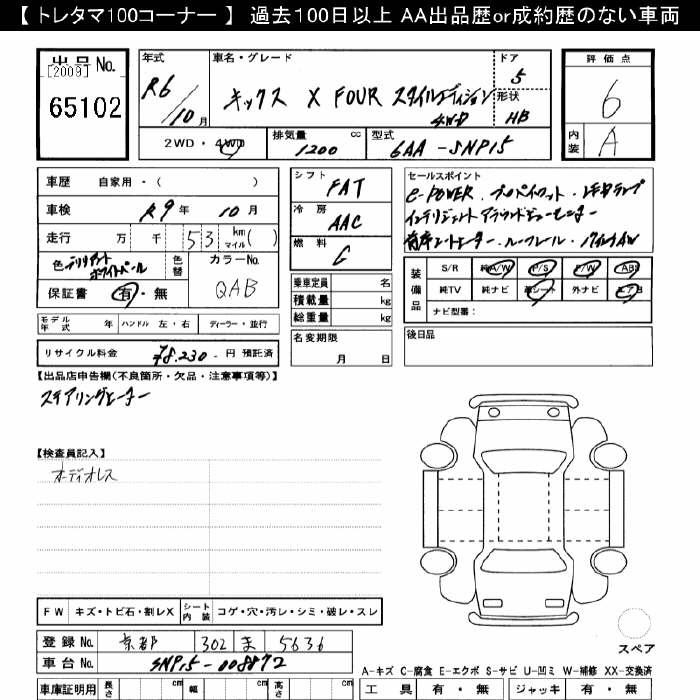 【 トレタマ100コーナー 】 過去100日以上 AA出品歴or成約歴のない車両
出品 No.
[2009]
65102
年式
R6/10月
車名・グレード
キックス X FOUR スタイルエディション
4WD
ドア
5
形状
HB
2WD・4WD
排気量 cc
1200
型式
6AA-SNP15
評価点
6
内装
A
車歴 自家用・( )
車検 R9年 10月
走行 万 千 53 km マイル ( )
色 ブリリアントホワイトパール
色替
カラーNo.
QAB
保証書 有・無
モデル年式 年 ハンドル 左・右 ディーラー・並行
リサイクル料金 ¥8,230- 円 預託済
シフト
FAT
冷房
AAC
燃料
G
乗車定員 名
積載量 kg
総重量 kg
名変期限
月 日
セールスポイント
e-POWER・プロパイロット・LEDランプ
インテリジェントアラウンドビューモニター
前席ヒートシーター・ルーフレール・17インチAW
装備品
S/R 純A/W P/S P/W ABS
純TV 純ナビ 革シート 外ナビ エアB
ナビ型番：
後日品
【出品店申告欄(不良箇所・欠品・注意事項等)】
ステアリングヒーター
【検査員記入】
オーディオレス
FW キズ・トビ石・割レX シート内装 コゲ・穴・汚レ・シミ・破レ・スレ
登録 No. 京都 302 ま 5636
車台 No. SNP15-008872
車庫証明用 長さ cm 幅 cm 高さ cm
スペア
A-キズ C-腐食 E-エクボ S-サビ U-凹ミ W-補修 XX-交換済
工具 有・無 ジャッキ 有・無